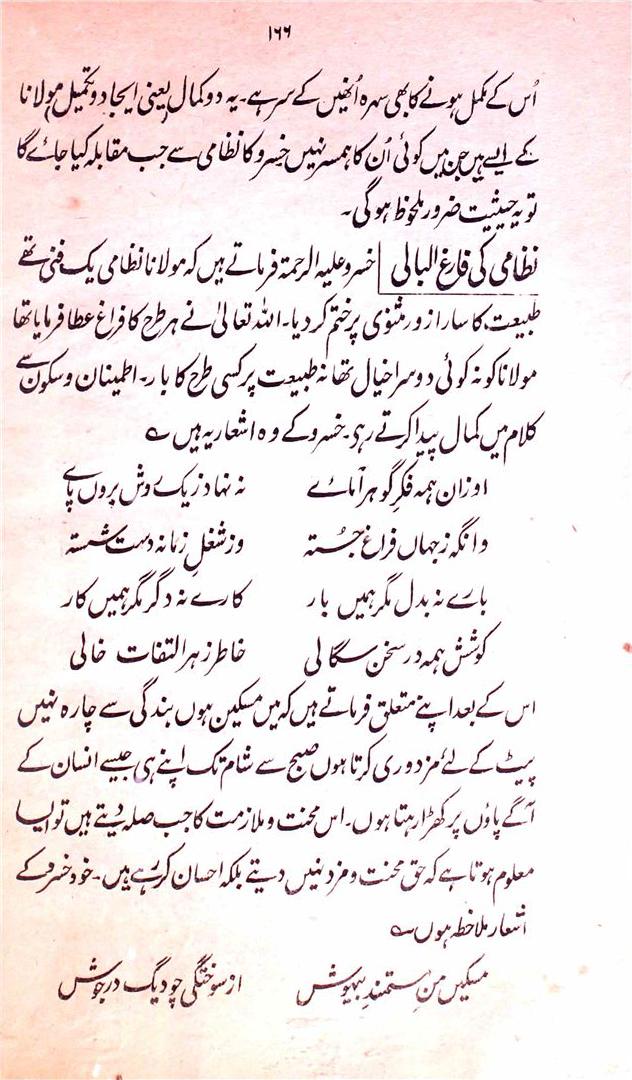 ۱۶۶
اُس کے مکمل ہونے کا بھی سہرہ اُنھیں کے سر ہے۔ یہ دو کمال (یعنی ایجاد و تکمیل) مولانا
کے ایسے ہیں جن میں کوئی اُن کا ہمسر نہیں خسرو کا نظامی سے جب مقابلہ کیا جائے گا
تو یہ حیثیت ضرور ملحوظ ہوگی۔
نظامی کی فارغ البالی | خسرو علیہ الرحمۃ فرماتے ہیں کہ مولانا نظامی یک فنی تھے
طبیعت کا سارا زور مثنوی پر ختم کر دیا۔ اللہ تعالیٰ نے ہر طرح کا فراغ عطا فرمایا تھا
مولانا کو نہ کوئی دوسرا خیال تھا نہ طبیعت پر کسی طرح کا بار۔ اطمینان و سکون سے
کلام میں کمال پیدا کرتے رہی۔ خسرو کے وہ اشعار یہ ہیں ؎
او زان ہمہ فکرِ گوہر آمائے نہ نہاد زیک روش بروں پاے
وانگہ زجہاں فراغ جُستہ وز شغلِ زمانہ دست شستہ
بارے نہ بدل مگر ہمیں بار کارے نہ دگر مگر ہمیں کار
کوشش ہمہ در سخن سگالی خاطر ز ہر التفات خالی
اس کے بعد اپنے متعلق فرماتے ہیں کہ میں مسکین ہوں بندگی سے چارہ نہیں
پیٹ کے لئے مزدوری کرتا ہوں صبح سے شام تک اپنے ہی جیسے انسان کے
آگے پاؤں پر کھڑا رہتا ہوں۔ اس محنت و ملازمت کا جب صلہ دیتے ہیں تو ایسا
معلوم ہوتا ہے کہ حق محنت و مزد نہیں دیتے بلکہ احسان کر رہے ہیں۔ خود خسرو کے
اشعار ملاحظہ ہوں ؎
مسکیں منِ مستمندِ بیہوش از سوختگی چو دیگ در جوش